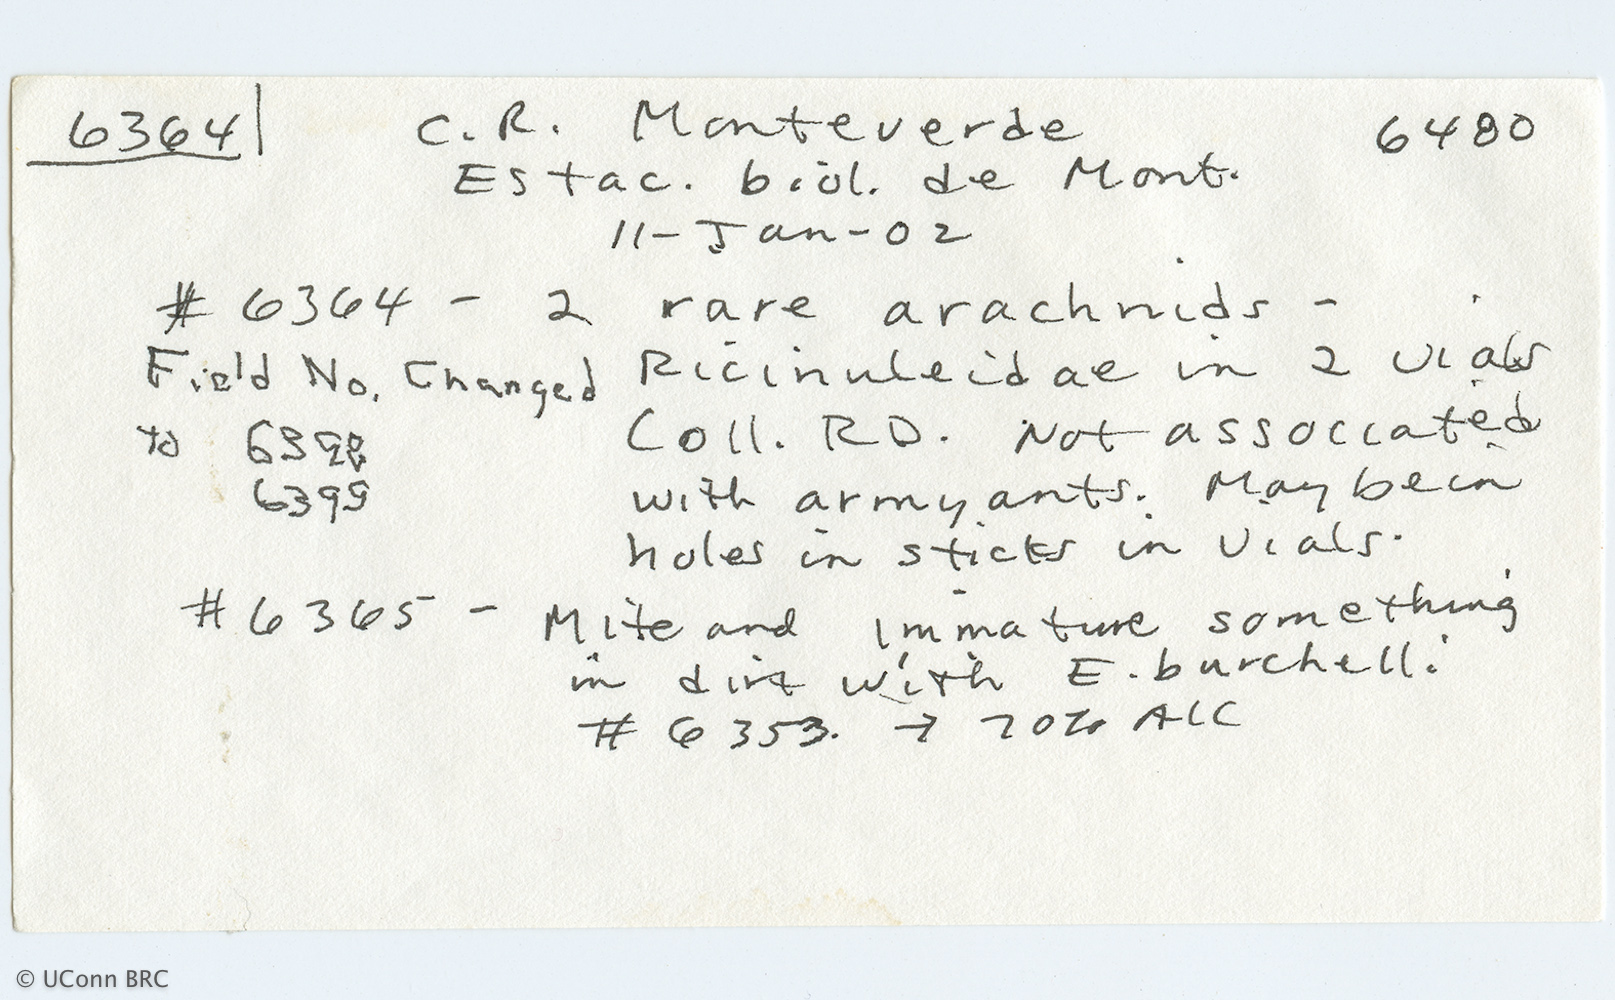 6364 C.R. Monteverde 6480
Estac. biol. de Mont.
11-Jan-02
#6364 - 2 rare arachnids -
Field No. Changed Ricinuleidae in 2 vials
to 6398 Coll. RD. Not associated
6399 with army ants. May be in
holes in sticks in vials.
#6365 - Mite and immature something
in dirt with E. burchelli
#6353. → 70% Alc
© UConn BRC